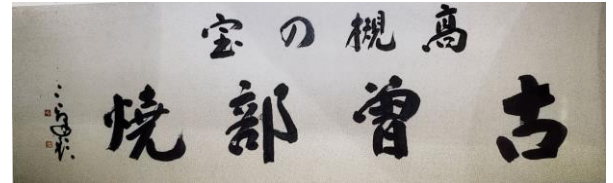 高槻の宝
古曽部焼